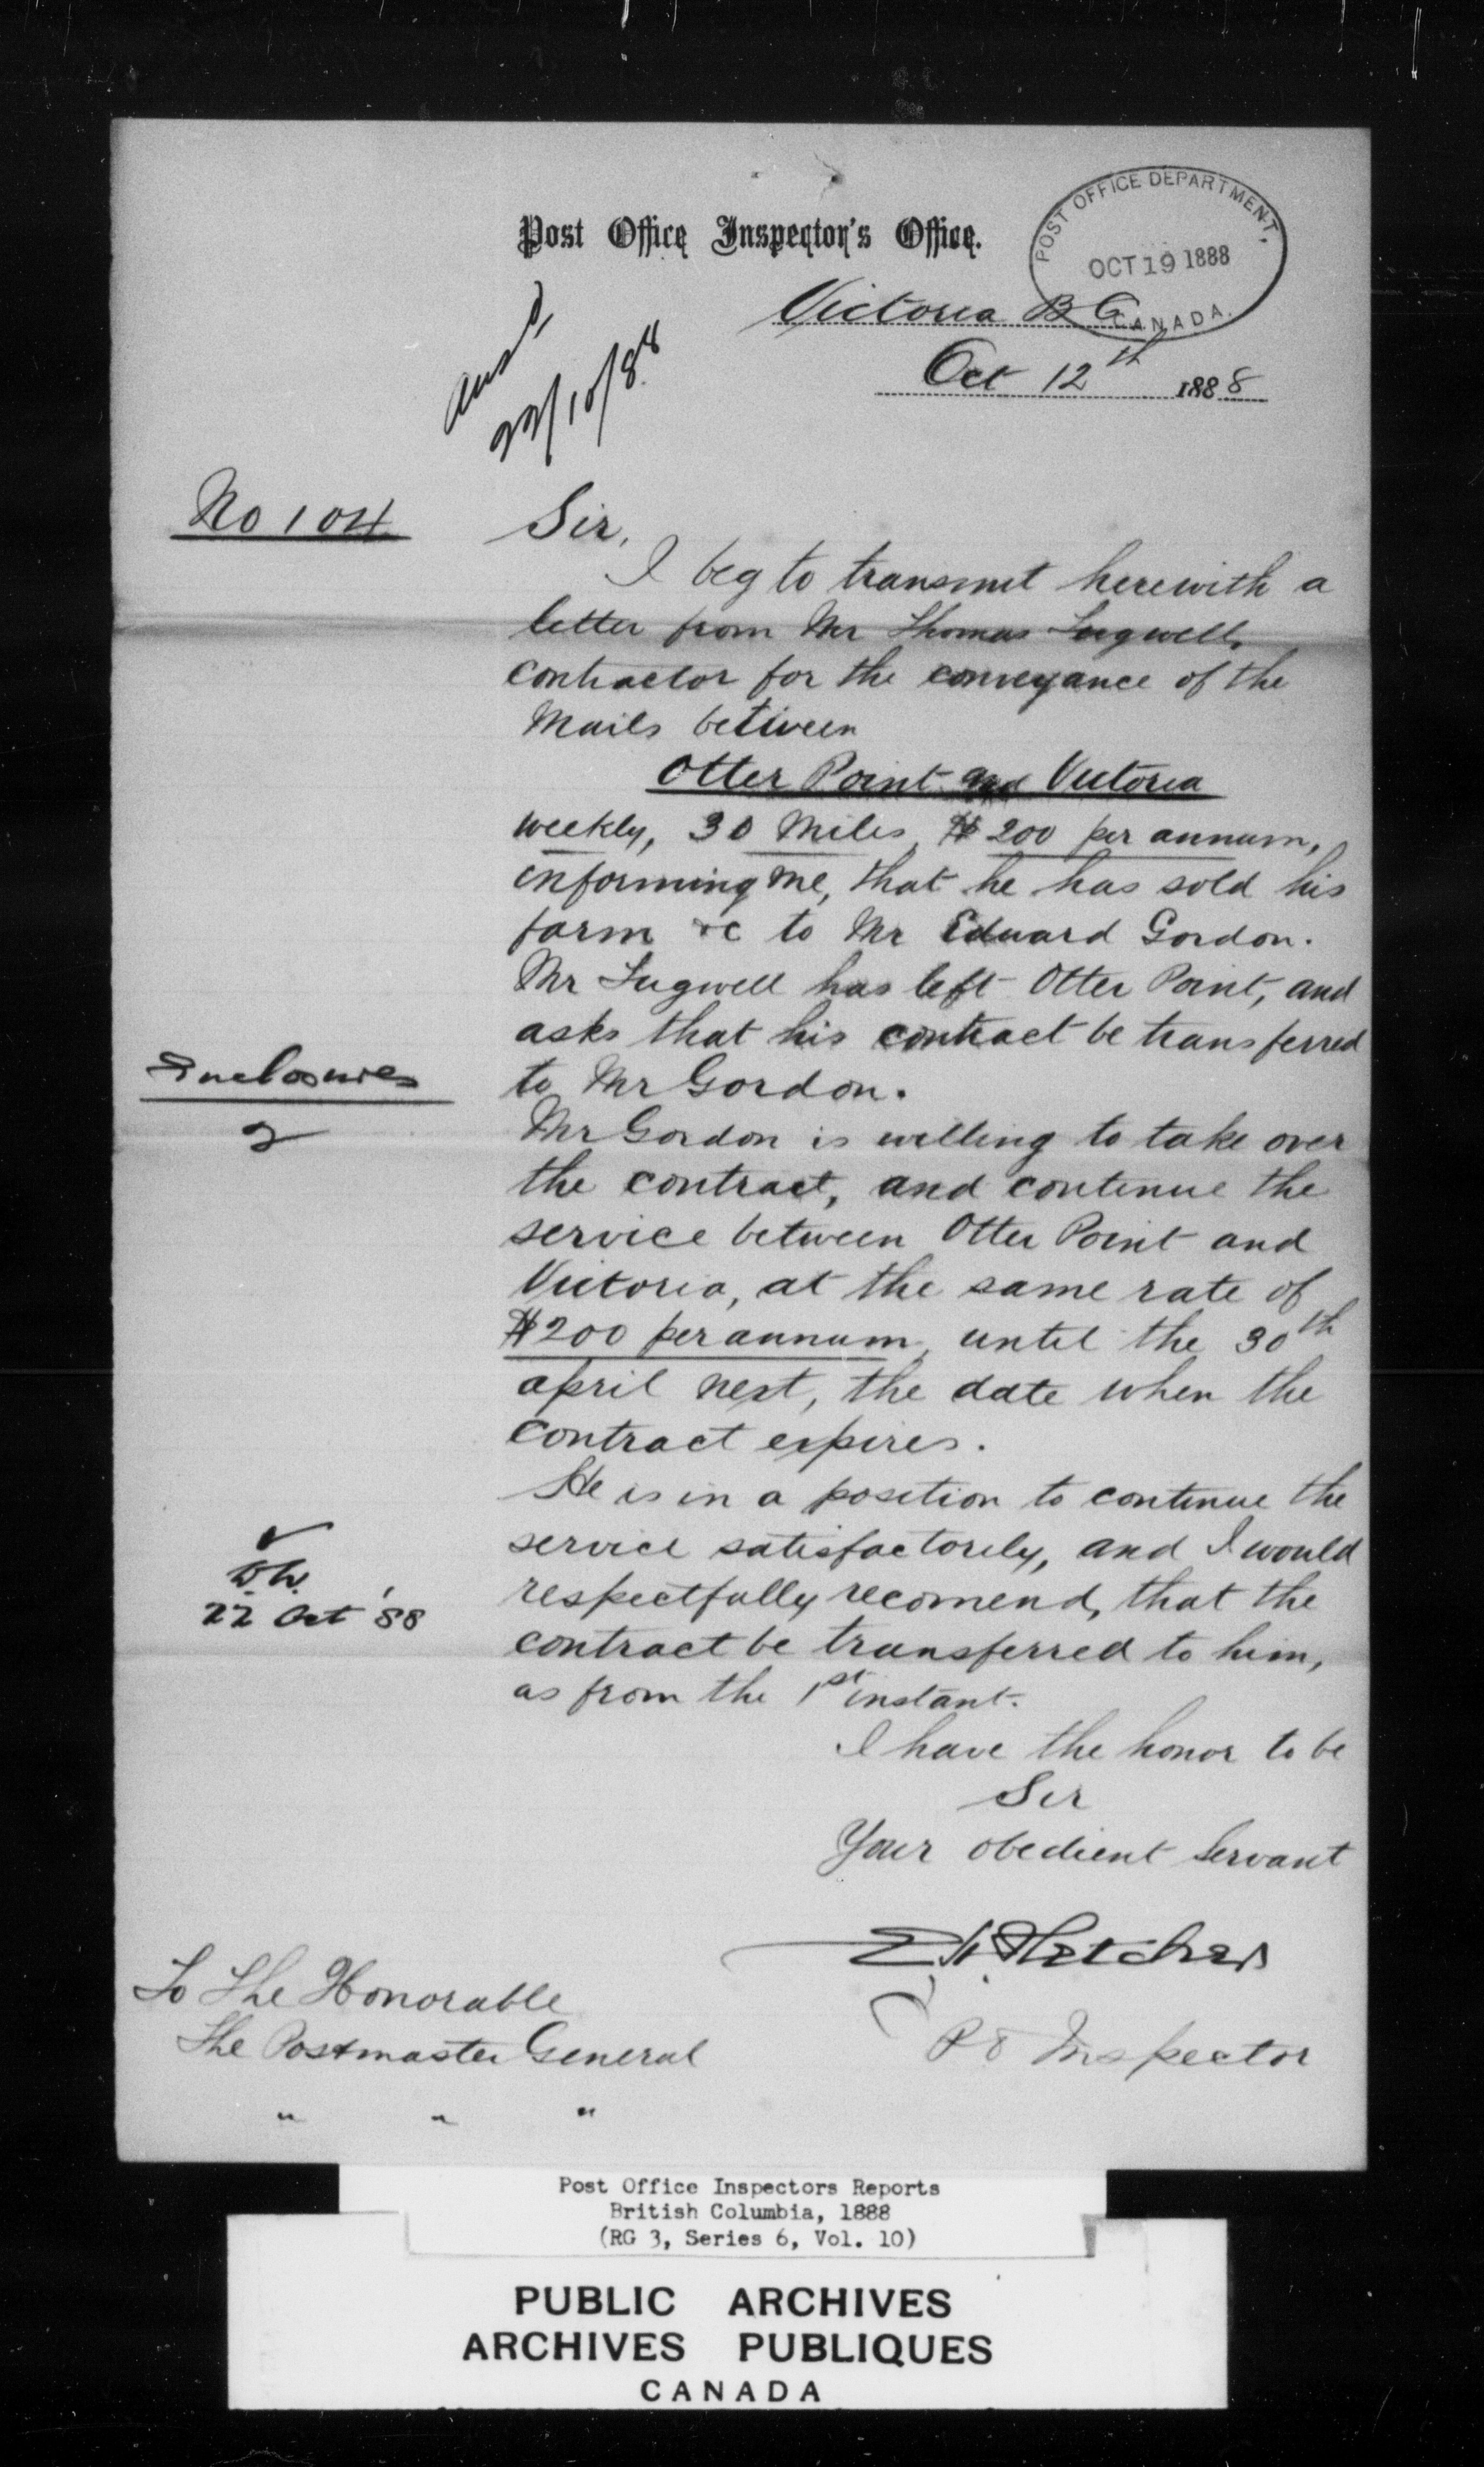 Post Office Inspector's Office.
POST OFFICE DEPARTMENT,
OCT 19 1888
CANADA.
Victoria B C
Oct 12th 1888
Ansd
22/10/88
No 104
Sir,
I beg to transmit herewith a
letter from Mr Thomas Tugwell,
contractor for the conveyance of the
Mails between
Otter Point and Victoria
weekly, 30 Miles, $200 per annum,
informing me, that he has sold his
farm &c to Mr Edward Gordon.
Mr Tugwell has left Otter Point, and
asks that his contract be transferred
to Mr Gordon.
Inclosures
2
Mr Gordon is willing to take over
the contract, and continue the
service between Otter Point and
Victoria, at the same rate of
$200 per annum, until the 30th
april next, the date when the
contract expires.
He is in a position to continue the
service satisfactorily, and I would
respectfully recomend, that the
contract be transferred to him,
as from the 1st instant.
22 Oct '88
I have the honor to be
Sir
Your obedient Servant
E H Fletcher
P O Inspector
To The Honorable
The Postmaster General
" " "
Post Office Inspectors Reports
British Columbia, 1888
(RG 3, Series 6, Vol. 10)
PUBLIC ARCHIVES
ARCHIVES PUBLIQUES
CANADA